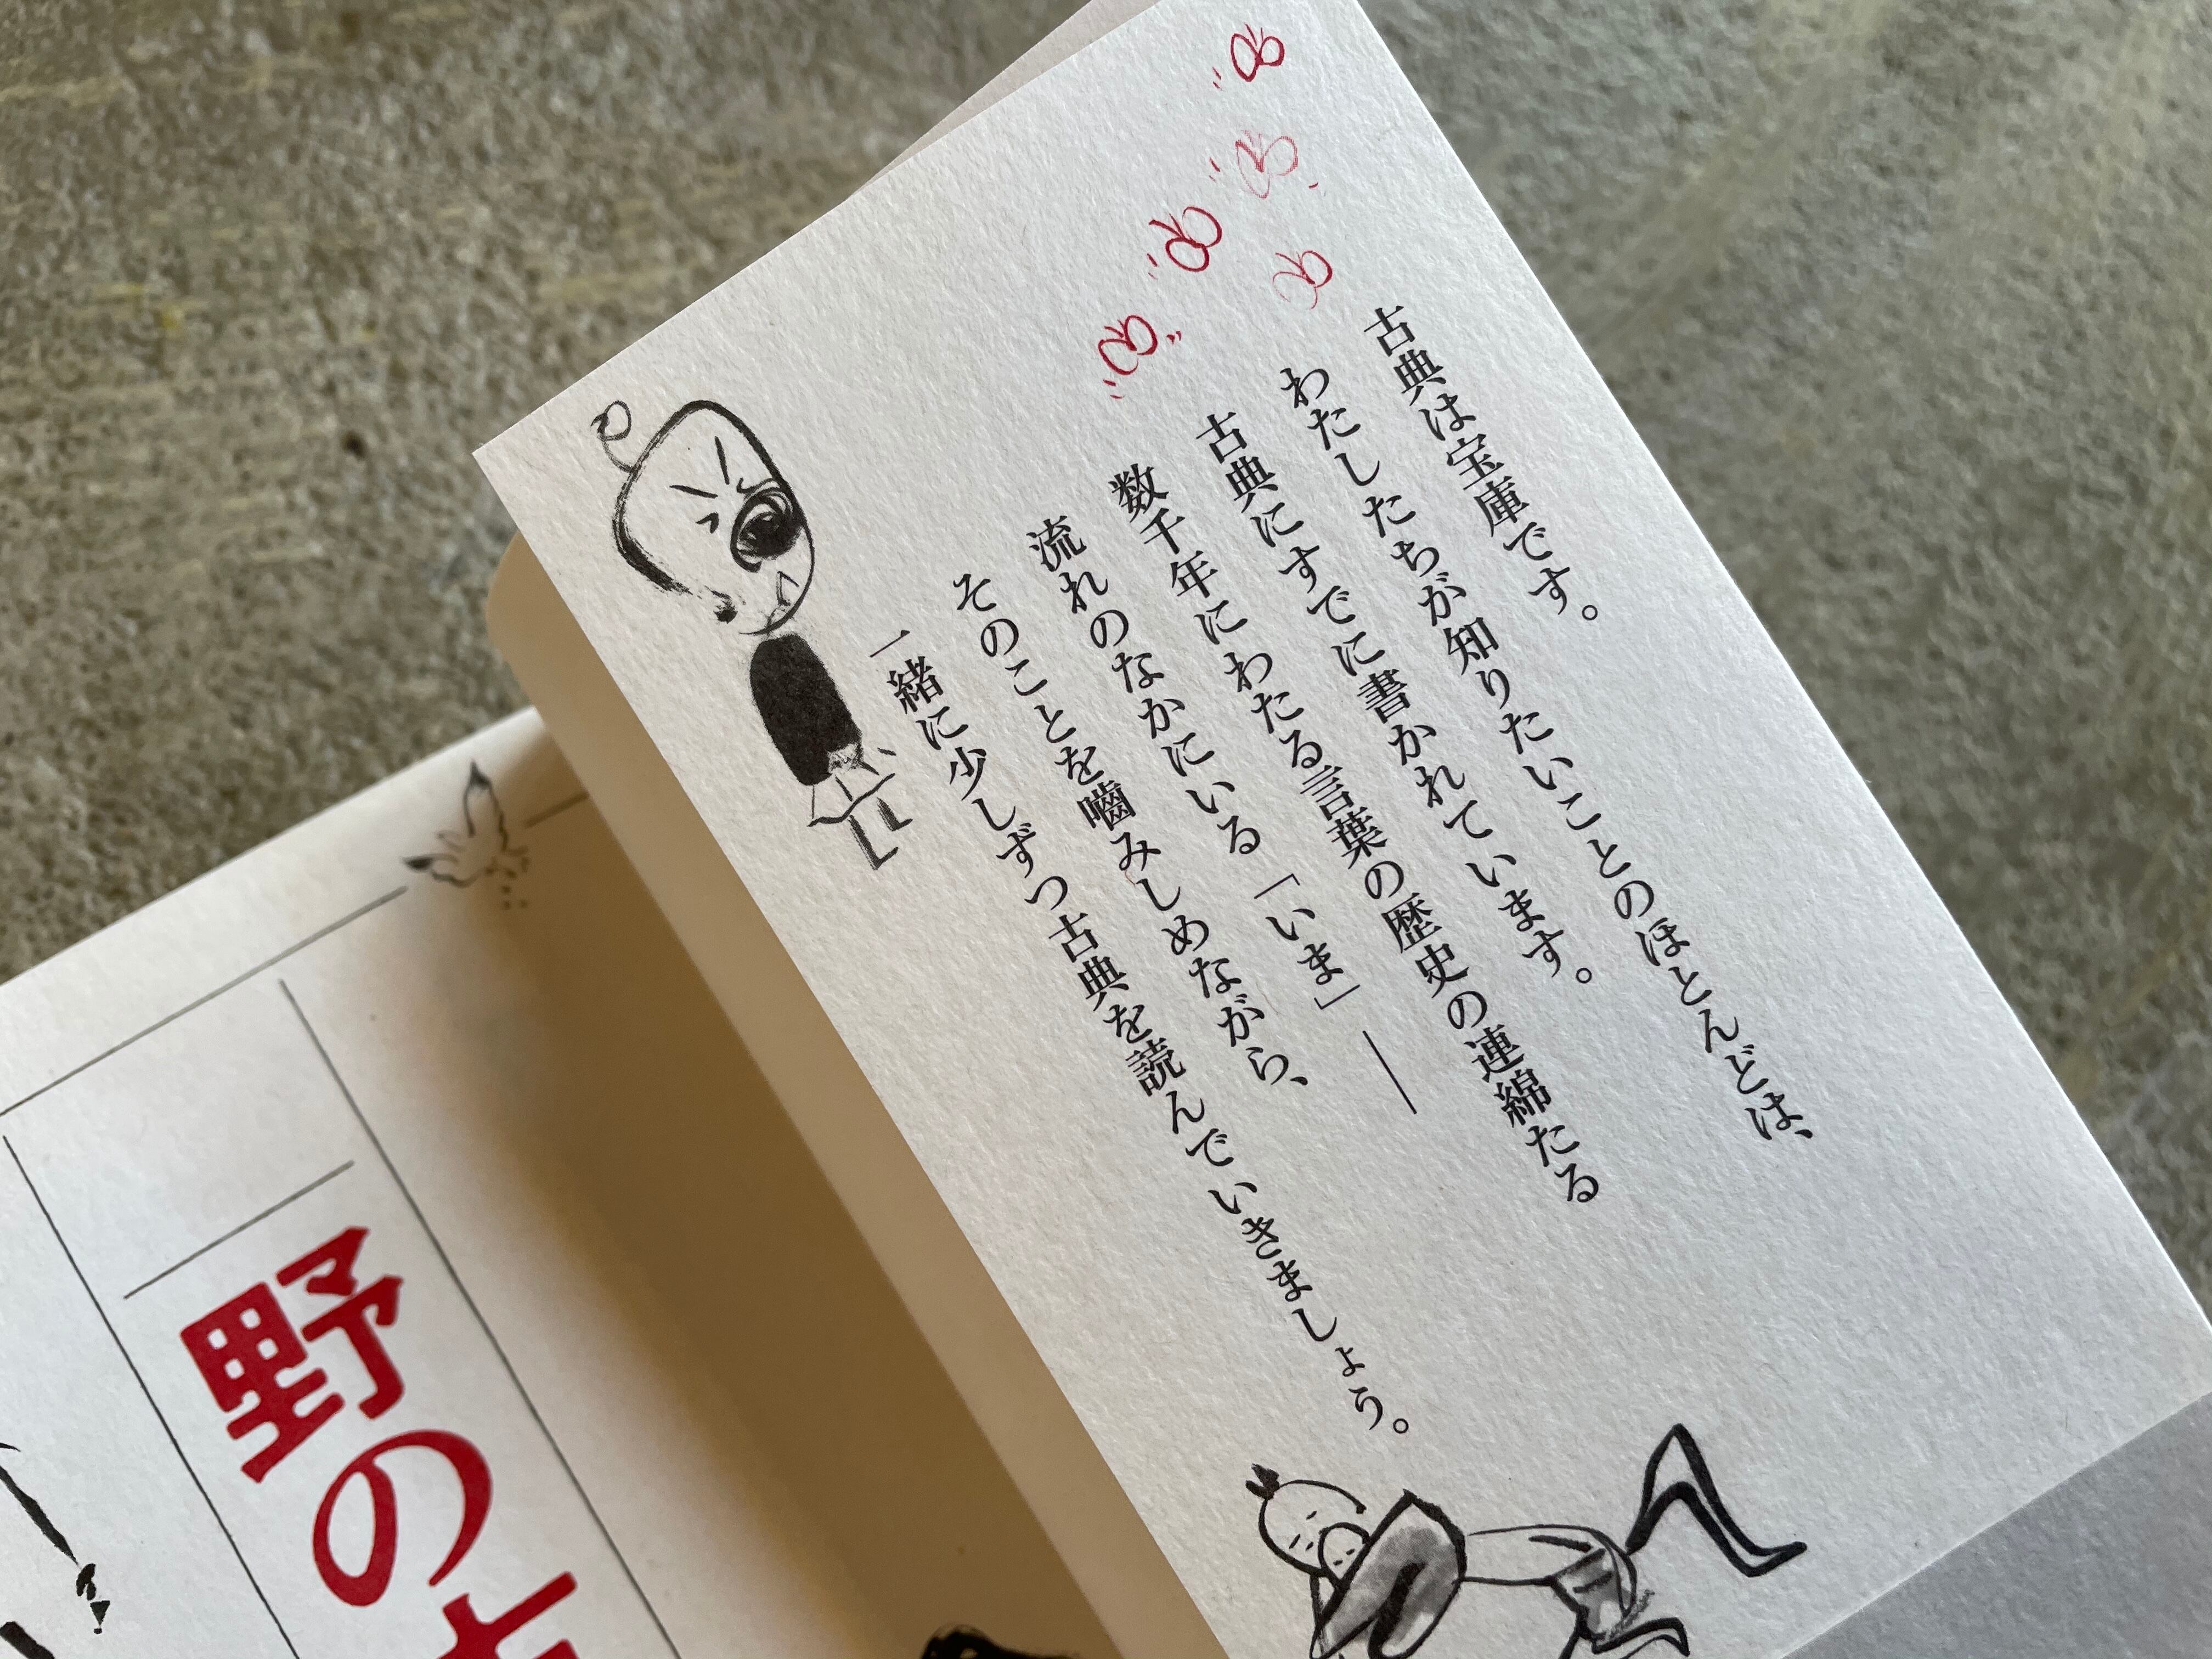 古典は宝庫です。
わたしたちが知りたいことのほとんどは、
古典にすでに書かれています。
数千年にわたる言葉の歴史の連綿たる
流れのなかにいる「いま」――
そのことを嚙みしめながら、
一緒に少しずつ古典を読んでいきましょう。
野の